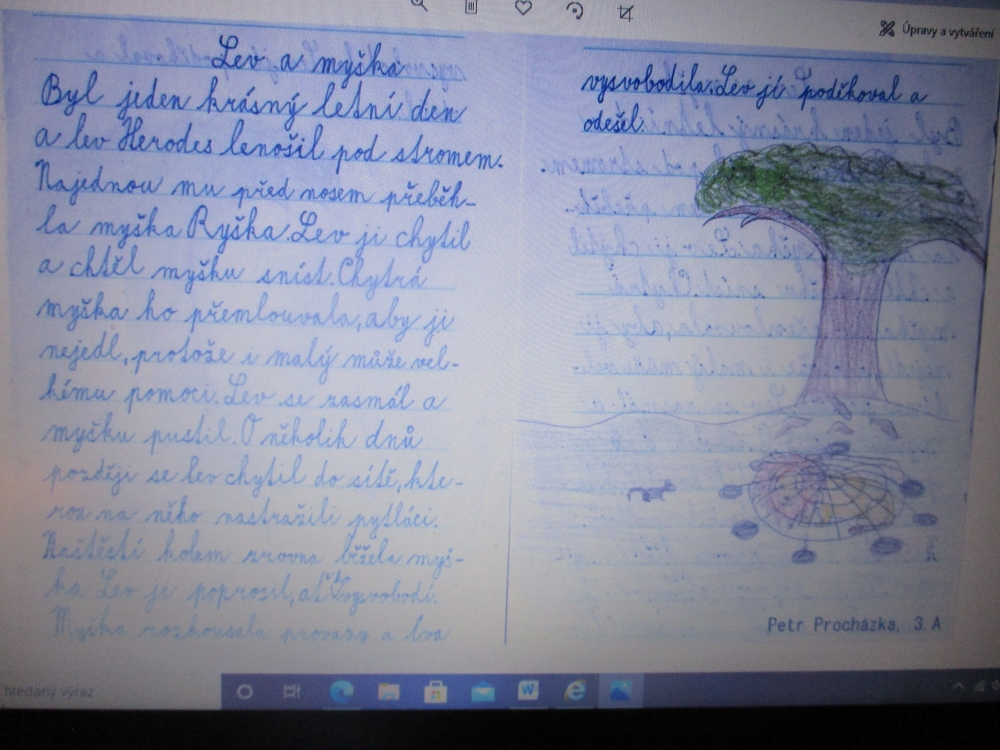 Úpravy a vytváření
Lev a myška
Byl jeden krásný letní den
a lev Herodes lenošil pod stromem.
Najednou mu před nosem přeběh-
la myška Ryška. Lev ji chytil
a chtěl myšku sníst. Chytrá
myška ho přemlouvala, aby ji
nejedl, protože i malý může vel-
kému pomoci. Lev se zasmál a
myšku pustil. O několik dnů
později se lev chytil do sítě, kte-
rou na něho nastražili pytláci.
Naštěstí kolem zrovna běžela myš-
ka Lev ji poprosil, ať ho vysvobodí.
Myška rozkousala provazy a lva
vysvobodila. Lev jí poděkoval a
odešel.
Petr Procházka, 3. A
hledaný výraz